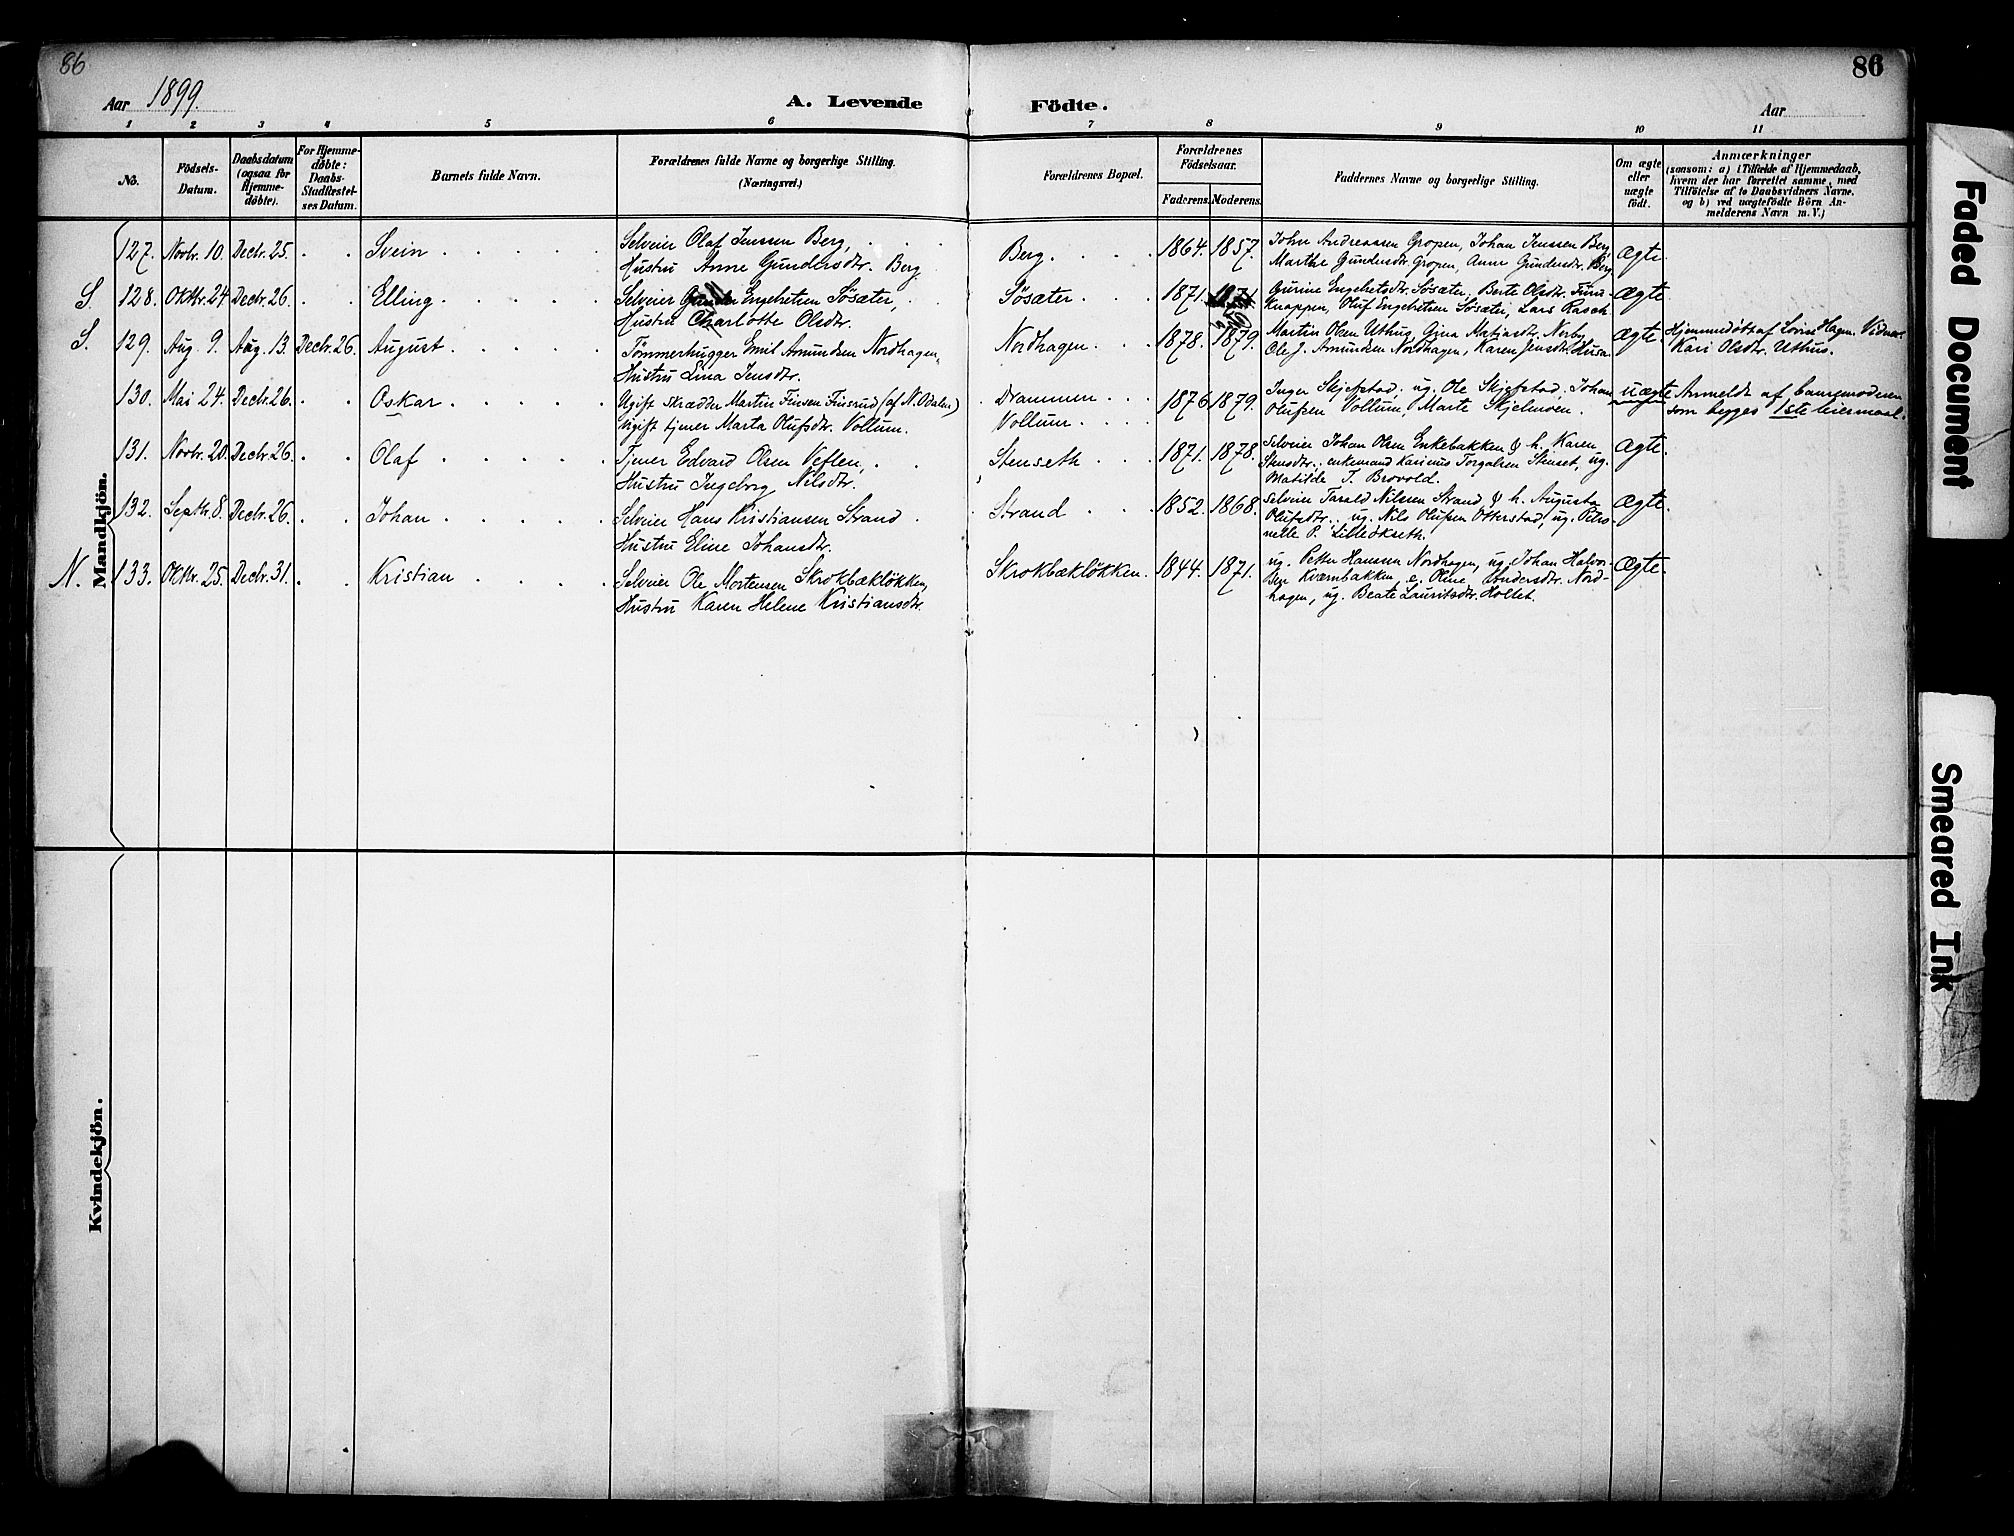 86
86
Aar 1899.
A. Levende
Födte.
Aar
1 2 3 4 5 6 7 8 9 10 11
No.
Födsels-
Datum.
Daabsdatum
(ogsaa for
Hjemme-
døbte).
For Hjemme-
døbte:
Daabs-
Stadfæstel-
ses Datum.
Barnets fulde Navn.
Forældrenes fulde Navne og borgerlige Stilling.
(Næringsvei.)
Forældrenes Bopæl.
Forældrenes
Födselsaar.
Faderens. Moderens.
Faddernes Navne og borgerlige Stilling.
Om ægte
eller
uægte
födt.
Anmærkninger
(saasom: a) i Tilfælde af Hjemmedaab,
hvem der har forrettet samme, med
Tilföielse af to Daabsvidners Navne,
og b) ved uægtefödte Börn An-
melderens Navn m. V.)
Mandkjön.
127. Novbr. 10. Decbr. 25. Svein
Selveier Olaf Jenssen Berg,
Hustru Anne Gundersdtr. Berg
Berg. 1864. 1857.
John Andreassen Gropen, Johan Jenssen Berg
Marthe Gundersdtr. Gropen, Anne Gundersdtr. Berg
Ægte.
S. 128. Oktbr. 24 Decbr. 26. Elling
Selveier Engebretsen Søsæter,
Hustru Charlotte Olsdtr.
Søsæter 1871.
Gurine Engebretsdtr. Søsæter, Berte Olsdtr. Furu-
Knappen, Oluf Engebretsen Søsæter, Lars Rasch.
Ægte
S. 129. Aug. 9. Aug. 13. Decbr. 26. August
Tømmerhugger Emil Amundsen Nordhagen,
Hustru Lina Jensdtr.
Nordhagen 1878. 1879.
Martin Olsen Uthus, Gina Matiasdtr. Norby,
Ole J. Amundsen Nordhagen, Karen Jensdtr. Husu.
Ægte.
Hjemmedøbt af Lovise Hagen. Vidner
Kari Olsdtr. Uthus.
130. Mai 24. Decbr. 26. Oskar
Ugift skrædder Martin Finsen Finsrud (af N. Odalen)
Ugift tjener Marta Olufsdtr. Vollum.
Drammen
Vollum
1876 1879.
Inger Skjefstad, ug. Ole Skjefstad, Johan
Olufsen Vollum, Marte Skjelmoen.
uægte
Anmeldt af barnemoderen
som begges 1ste leiermaal.
131. Novbr. 20. Decbr. 26. Olaf
Tjener Edvard Olsen Veflen,
Hustru Ingeborg Nilsdtr.
Stenseth 1871. 1878.
Selveier Johan Olsen Enkebakken & h. Karen
Stensdtr., enkemand Karinus Torgalsen Stenset, ug.
Matilde T. Brovold.
Ægte.
132. Septbr. 8. Decbr. 26. Johan
Selveier Hans Kristiansen Strand
Hustru Eline Johansdtr.
Strand 1852. 1868.
Selveier Tarald Nilssen Strand & h. Augusta
Olufsdtr., ug. Nils Olufsen Otterstad, ug. Petro-
nelle P. Lilleökseth.
Ægte.
N. 133. Oktbr. 25. Decbr. 31. Kristian
Selveier Ole Mortensen Skrokbækløkken,
Hustru Karen Helene Kristiansdtr.
Skrokbækløkken. 1844. 1871.
ug. Petter Hansen Nordhagen, ug. Johan Halvor-
sen Kværnbakken, e. Oline Andersdtr. Nord-
hagen, ug. Beate Lauritsdtr. Holtet.
Ægte.
Kvindekjön.
Faded Document
Smeared Ink